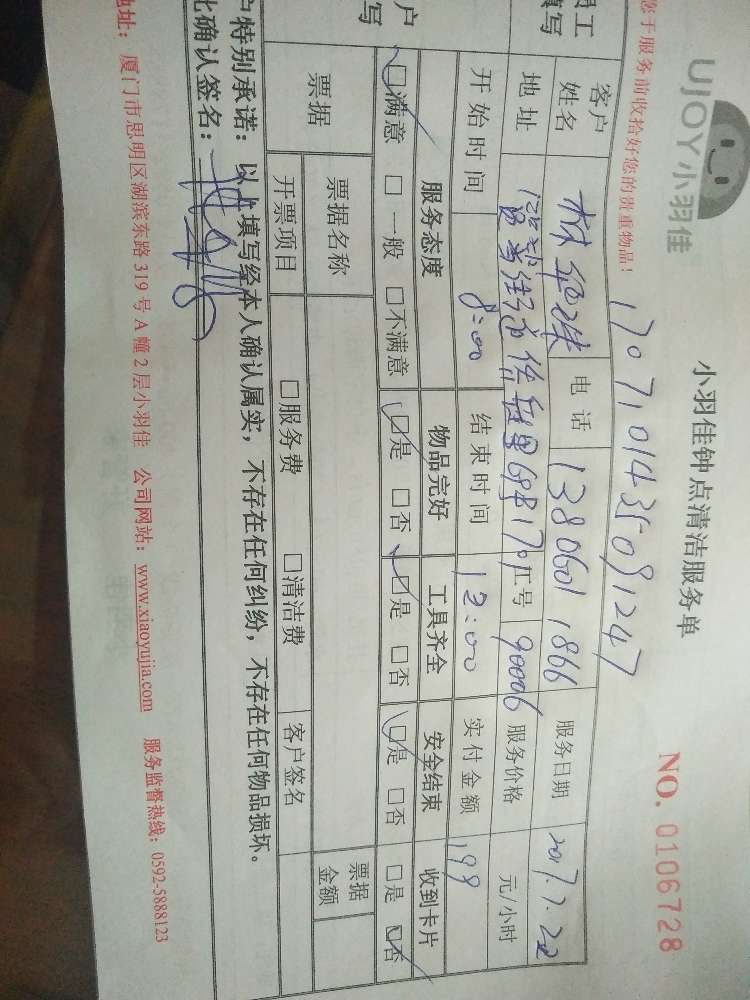 UJOY小羽佳
小羽佳钟点清洁服务单
NO. 0106728
您于服务前收拾好您的贵重物品!
1707101435091247
员工
填写
客户
姓名
电话
13806011866
服务日期
2017.7.22
地址
工号
90006
服务价格
元/小时
开始时间
8:00
结束时间
12:00
实付金额
199
户
写
服务态度
物品完好
工具齐全
安全结束
收到卡片
☑满意 □一般 □不满意
☑是 □否
☑是 □否
☑是 □否
□是 ☑否
票据
票据名称
票据
金额
开票项目
□服务费 □清洁费
客户签名
户特别承诺:以上填写经本人确认属实,不存在任何纠纷,不存在任何物品损坏。
此确认签名:
地址:厦门市思明区湖滨东路319号A幢2层小羽佳 公司网站:www.xiaoyujia.com 服务监督热线:0592-5888123